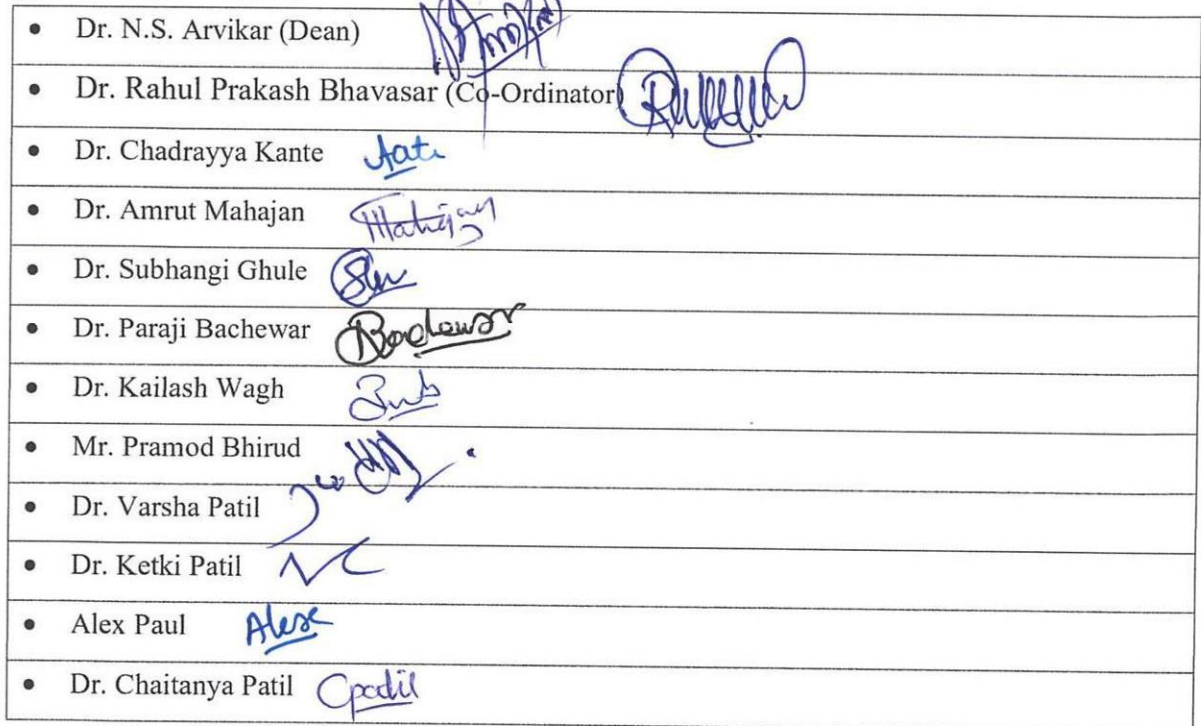 • Dr. N.S. Arvikar (Dean)
• Dr. Rahul Prakash Bhavasar (Co-Ordinator)
• Dr. Chadrayya Kante
• Dr. Amrut Mahajan Mahajan
• Dr. Subhangi Ghule
• Dr. Paraji Bachewar
• Dr. Kailash Wagh
• Mr. Pramod Bhirud
• Dr. Varsha Patil
• Dr. Ketki Patil
• Alex Paul Alex
• Dr. Chaitanya Patil